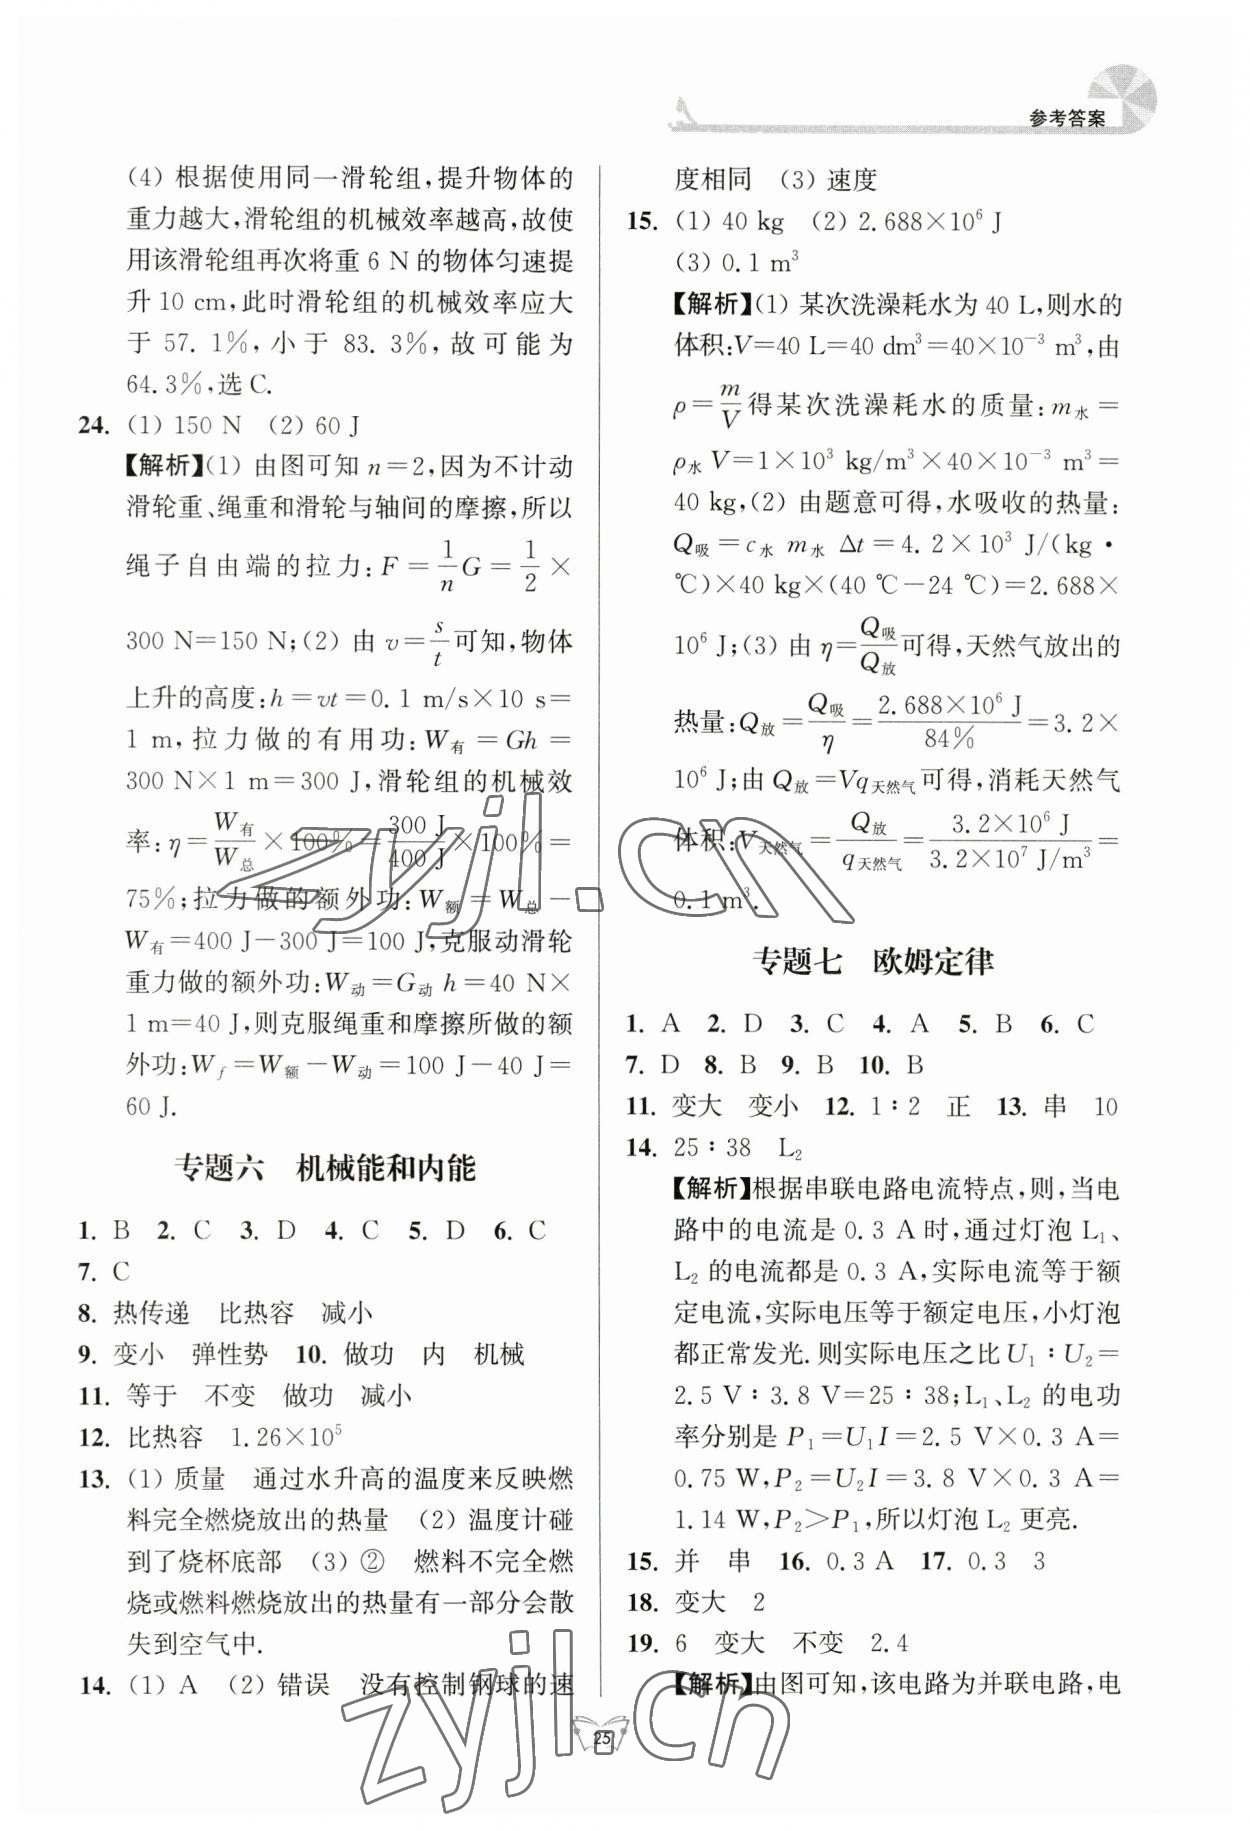 参考答案
(4) 根据使用同一滑轮组,提升物体的
重力越大,滑轮组的机械效率越高,故使
用该滑轮组再次将重 6 N 的物体匀速提
升 10 cm,此时滑轮组的机械效率应大
于 57. 1%,小于 83. 3%,故可能为
64.3%,选 C.
24. (1) 150 N (2) 60 J
【解析】(1) 由图可知 n=2,因为不计动
滑轮重、绳重和滑轮与轴间的摩擦,所以
绳子自由端的拉力:F=\frac{1}{n}G=\frac{1}{2}×
300 N=150 N;(2) 由 v=\frac{s}{t}可知,物体
上升的高度:h=vt=0.1 m/s×10 s=
1 m,拉力做的有用功:W有=Gh=
300 N×1 m=300 J,滑轮组的机械效
率:η=\frac{W有}{W总}×100%=\frac{300 J}{400 J}×100%=
75%;拉力做的额外功:W额=W总-
W有=400 J-300 J=100 J,克服动滑轮
重力做的额外功:W动=G动 h=40 N×
1 m=40 J,则克服绳重和摩擦所做的额
外功:W_f=W额-W动=100 J-40 J=
60 J.
专题六 机械能和内能
1. B 2. C 3. D 4. C 5. D 6. C
7. C
8. 热传递 比热容 减小
9. 变小 弹性势 10. 做功 内 机械
11. 等于 不变 做功 减小
12. 比热容 1.26×10⁵
13. (1) 质量 通过水升高的温度来反映燃
料完全燃烧放出的热量 (2) 温度计碰
到了烧杯底部 (3) ② 燃料不完全燃
烧或燃料燃烧放出的热量有一部分会散
失到空气中.
14. (1) A (2) 错误 没有控制钢球的速
度相同 (3) 速度
15. (1) 40 kg (2) 2.688×10⁶ J
(3) 0.1 m³
【解析】(1) 某次洗澡耗水为 40 L,则水的
体积:V=40 L=40 dm³=40×10⁻³ m³,由
ρ=\frac{m}{V}得某次洗澡耗水的质量:m水=
ρ水 V=1×10³ kg/m³×40×10⁻³ m³=
40 kg,(2) 由题意可得,水吸收的热量:
Q吸=c水 m水 Δt=4.2×10³ J/(kg·
℃)×40 kg×(40 ℃-24 ℃)=2.688×
10⁶ J;(3) 由 η=\frac{Q吸}{Q放}可得,天然气放出的
热量:Q放=\frac{Q吸}{η}=\frac{2.688×10⁶ J}{84%}=3.2×
10⁶ J;由 Q放=Vq天然气可得,消耗天然气
体积:V天然气=\frac{Q放}{q天然气}=\frac{3.2×10⁶ J}{3.2×10⁷ J/m³}=
0.1 m³.
专题七 欧姆定律
1. A 2. D 3. C 4. A 5. B 6. C
7. D 8. B 9. B 10. B
11. 变大 变小 12. 1∶2 正 13. 串 10
14. 25∶38 L₂
【解析】根据串联电路电流特点,则,当电
路中的电流是 0.3 A 时,通过灯泡 L₁、
L₂ 的电流都是 0.3 A,实际电流等于额
定电流,实际电压等于额定电压,小灯泡
都正常发光.则实际电压之比 U₁∶U₂=
2.5 V∶3.8 V=25∶38;L₁、L₂ 的电功
率分别是 P₁=U₁I=2.5 V×0.3 A=
0.75 W,P₂=U₂I=3.8 V×0.3 A=
1.14 W,P₂>P₁,所以灯泡 L₂ 更亮.
15. 并 串 16. 0.3 A 17. 0.3 3
18. 变大 2
19. 6 变大 不变 2.4
【解析】由图可知,该电路为并联电路,电
25
zyjl.cn
zyjl.cn